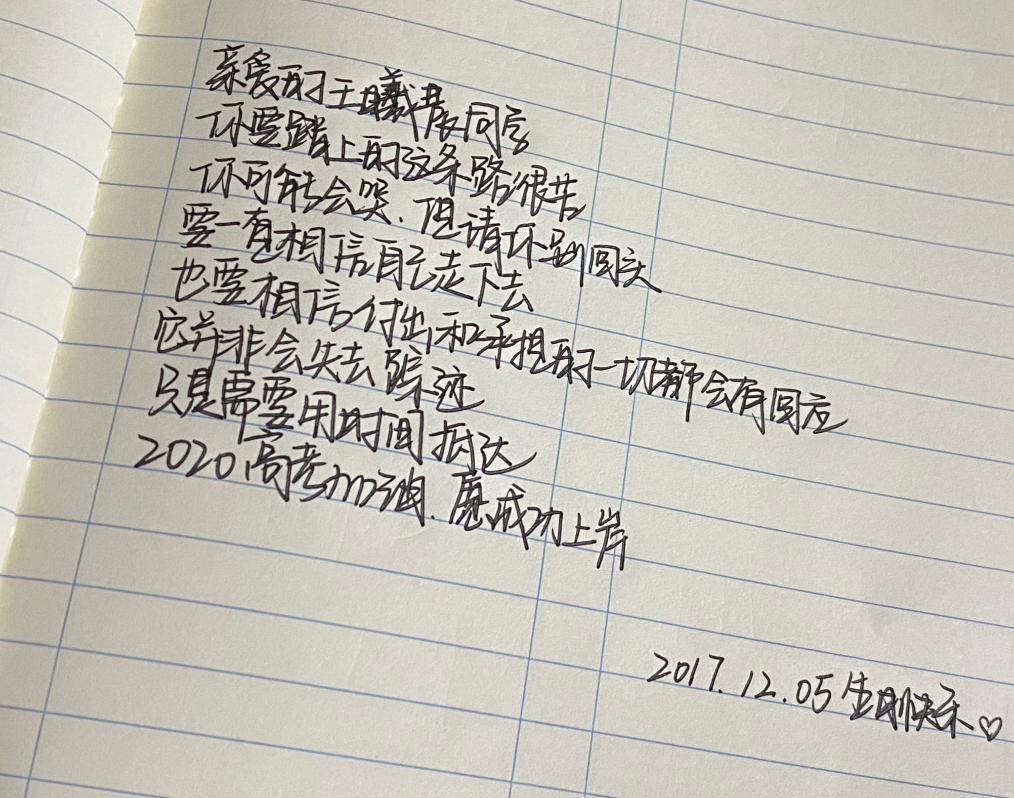 亲爱的王曦晨同学
你要踏上的这条路很苦
你可能会哭.但请你别回头
要一直相信自己走下去
也要相信付出和承担的一切都会有回应
它并非会失去踪迹
只是需要用时间抵达
2020高考加油.愿成功上岸
2017.12.05生日快乐♡